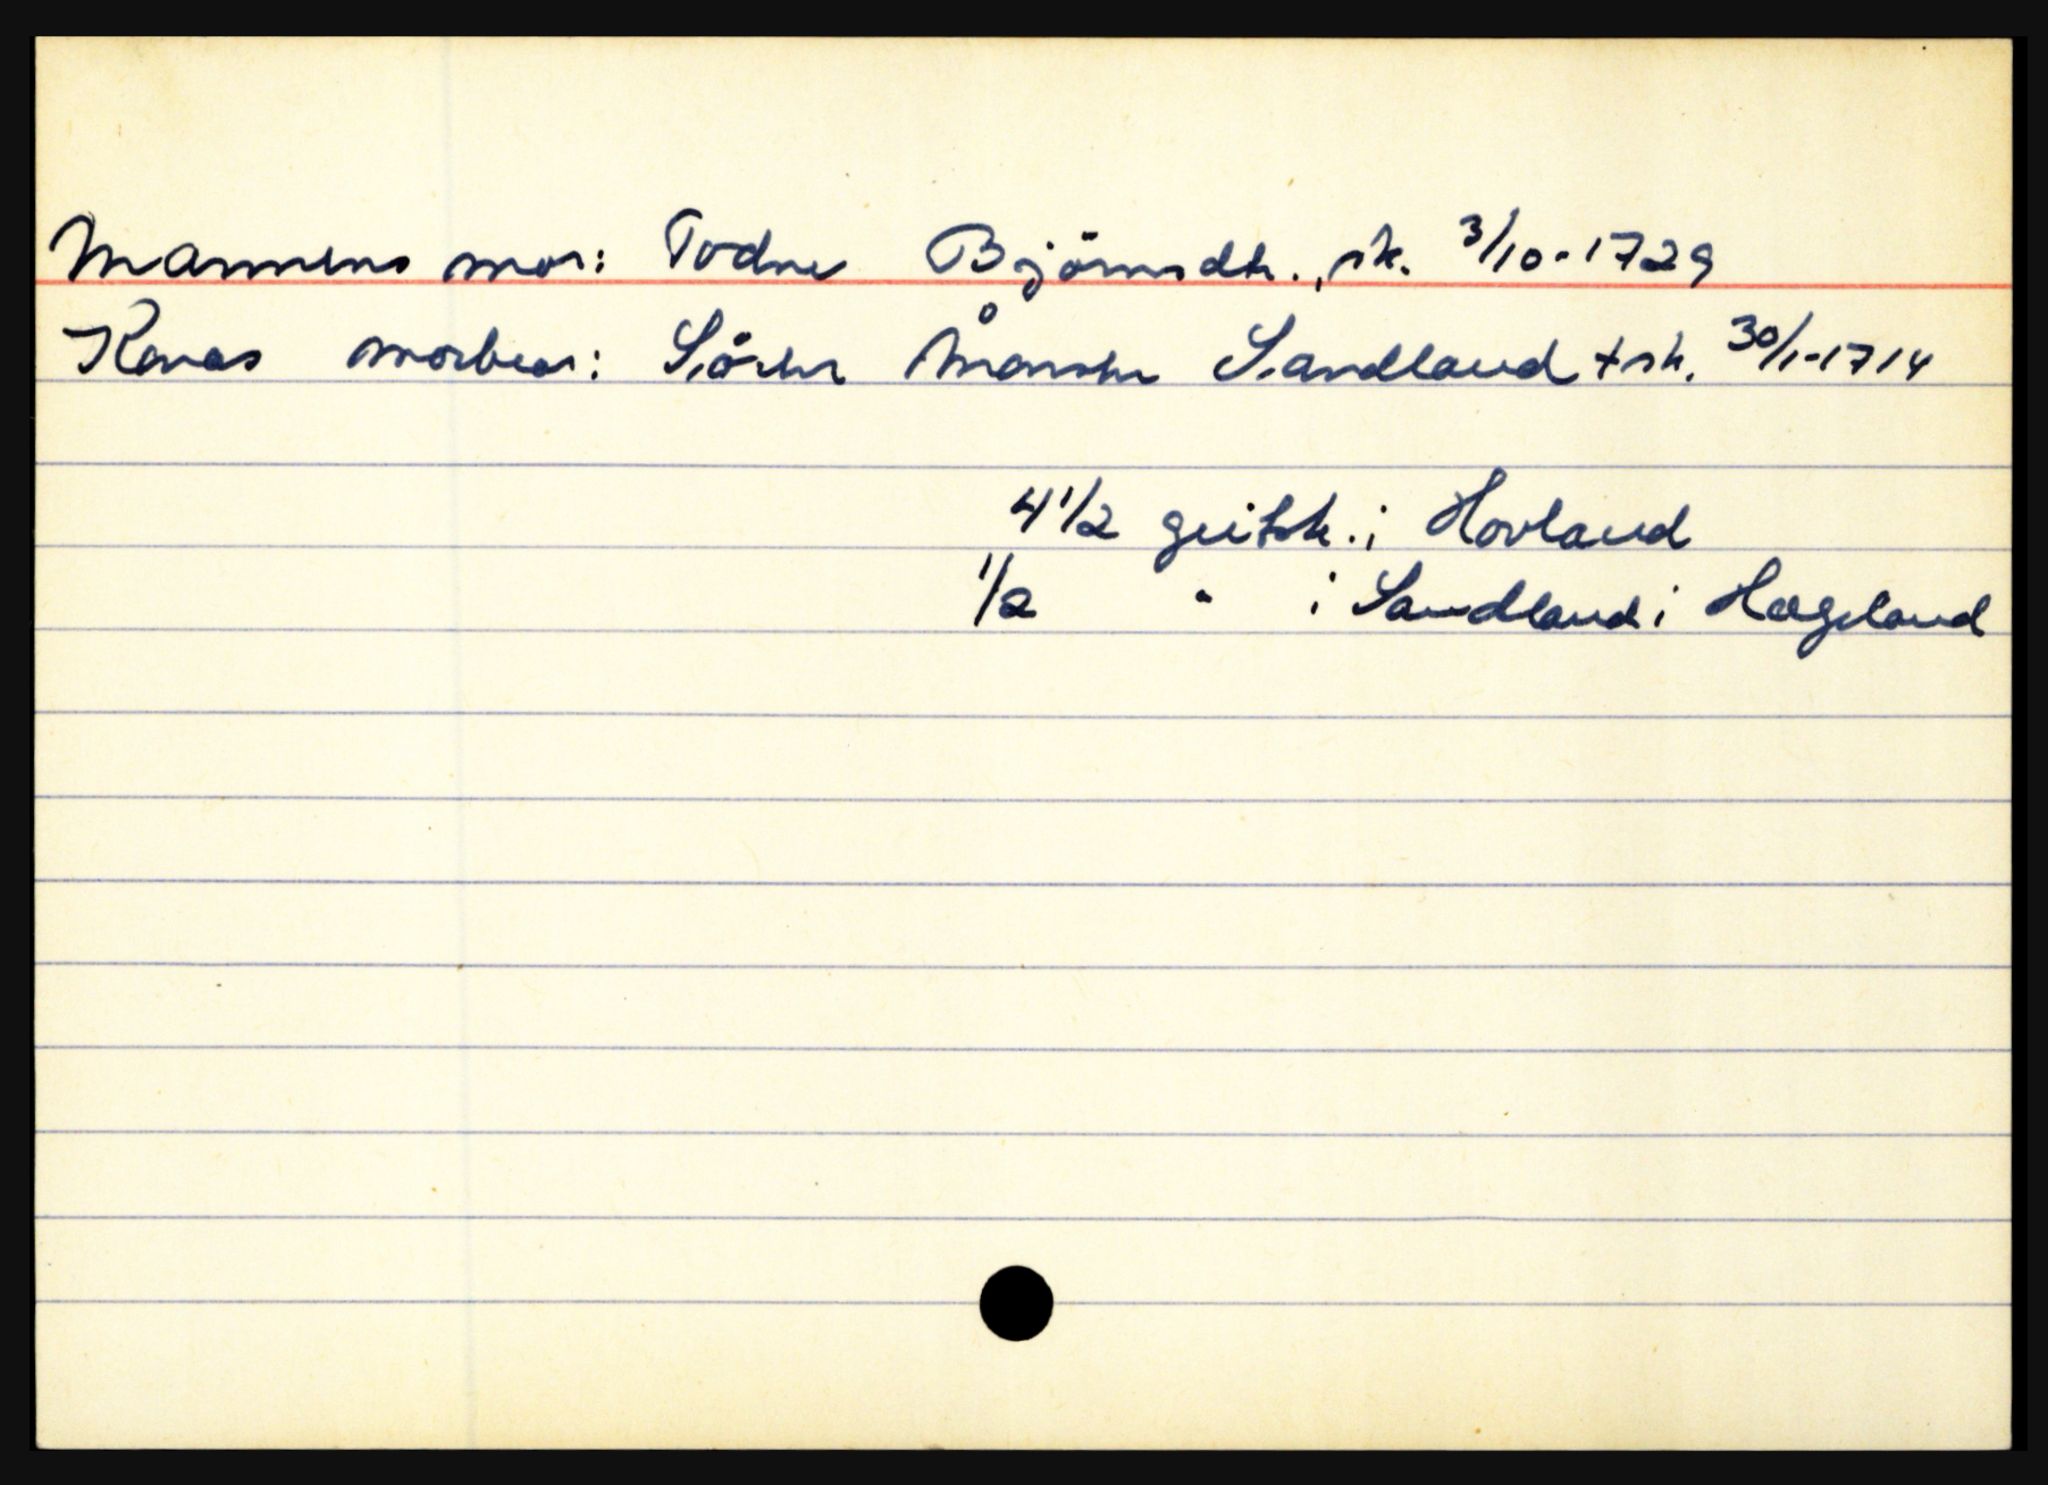 Mannens mor: Todne Björnsdtr., sk. 3/10-1729
Konas morbror: Sören Månsen Sandland + sk. 30/1-1714
4 1/2 geitsk. i Hovland
1/2 " i Sandland i Hægeland